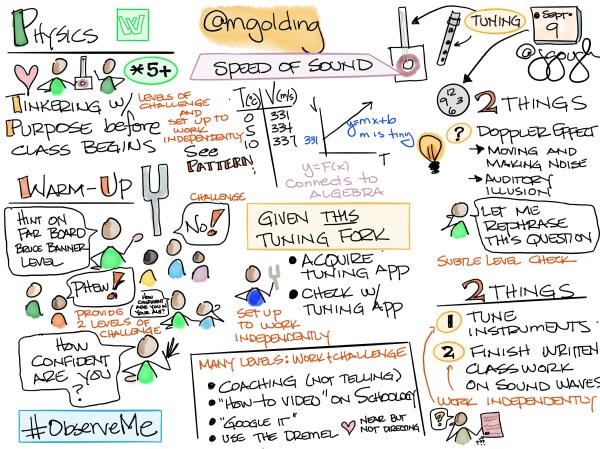 Physics
W
@mgolding
TUNING
Sept
9
@jgough
*5+
SPEED OF SOUND
TINKERING W/
PURPOSE before
CLASS BEGINS
LEVELS OF
CHALLENGE AND
SET UP TO
WORK
INDEPENDENTLY
See
PATTERN!
T(°C) V(m/s)
0 331
5 334
10 337
V
331
T
y=mx+b
m is tiny
y=F(x)
connects to
ALGEBRA
12
3
6
9
2 THINGS
? DOPPLER EFFECT
→ MOVING AND
MAKING NOISE
→ AUDITORY
ILLUSION
LET ME
REPHRASE
THIS QUESTION
SUBTLE LEVEL CHECK
WARM-UP
HINT ON
FAR BOARD
BRUCE BANNER
LEVEL
CHALLENGE
No!
PHEW!
PROVIDE
2 LEVELS OF
CHALLENGE
HOW
CONFIDENT
ARE YOU IN
YOUR ANS?
HOW
CONFIDENT
ARE YOU
?
#ObserveMe
GIVEN THIS
TUNING FORK
• ACQUIRE
TUNING APP
• CHECK W/
TUNING APP
SET UP
TO WORK
INDEPENDENTLY
MANY LEVELS: WORK + CHALLENGE
• COACHING (NOT TELLING)
• "HOW-TO VIDEO" ON SCHOOLOGY
• "GOOGLE IT"
• USE THE DREMEL
NEAR BUT
NOT DIRECTING
2 THINGS
1 TUNE
INSTRUMENTS
2 FINISH WRITTEN
CLASS WORK
ON SOUND WAVES
WORK INDEPENDENTLY
?